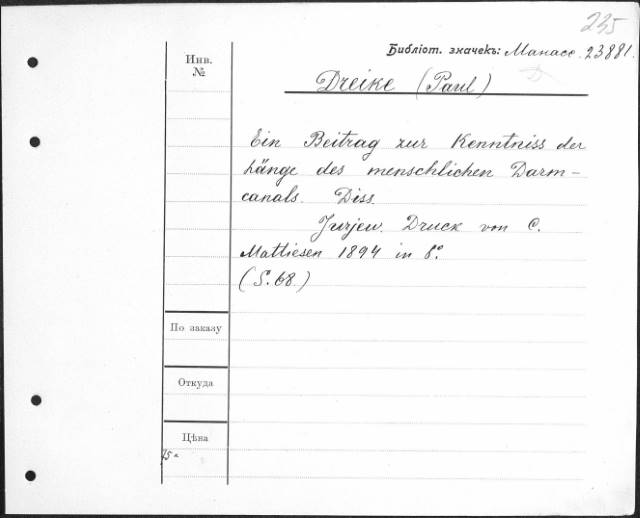 235
Библіот. значекъ: Манасс. 23881.
Инв. №
Dreike (Paul)
Ein Beitrag zur Kenntniss der
Länge des menschlichen Darm-
canals. Diss.
Jurjew. Druck von C.
Mattiesen 1894 in 8°.
(S. 68.)
По заказу
Откуда
Цѣна